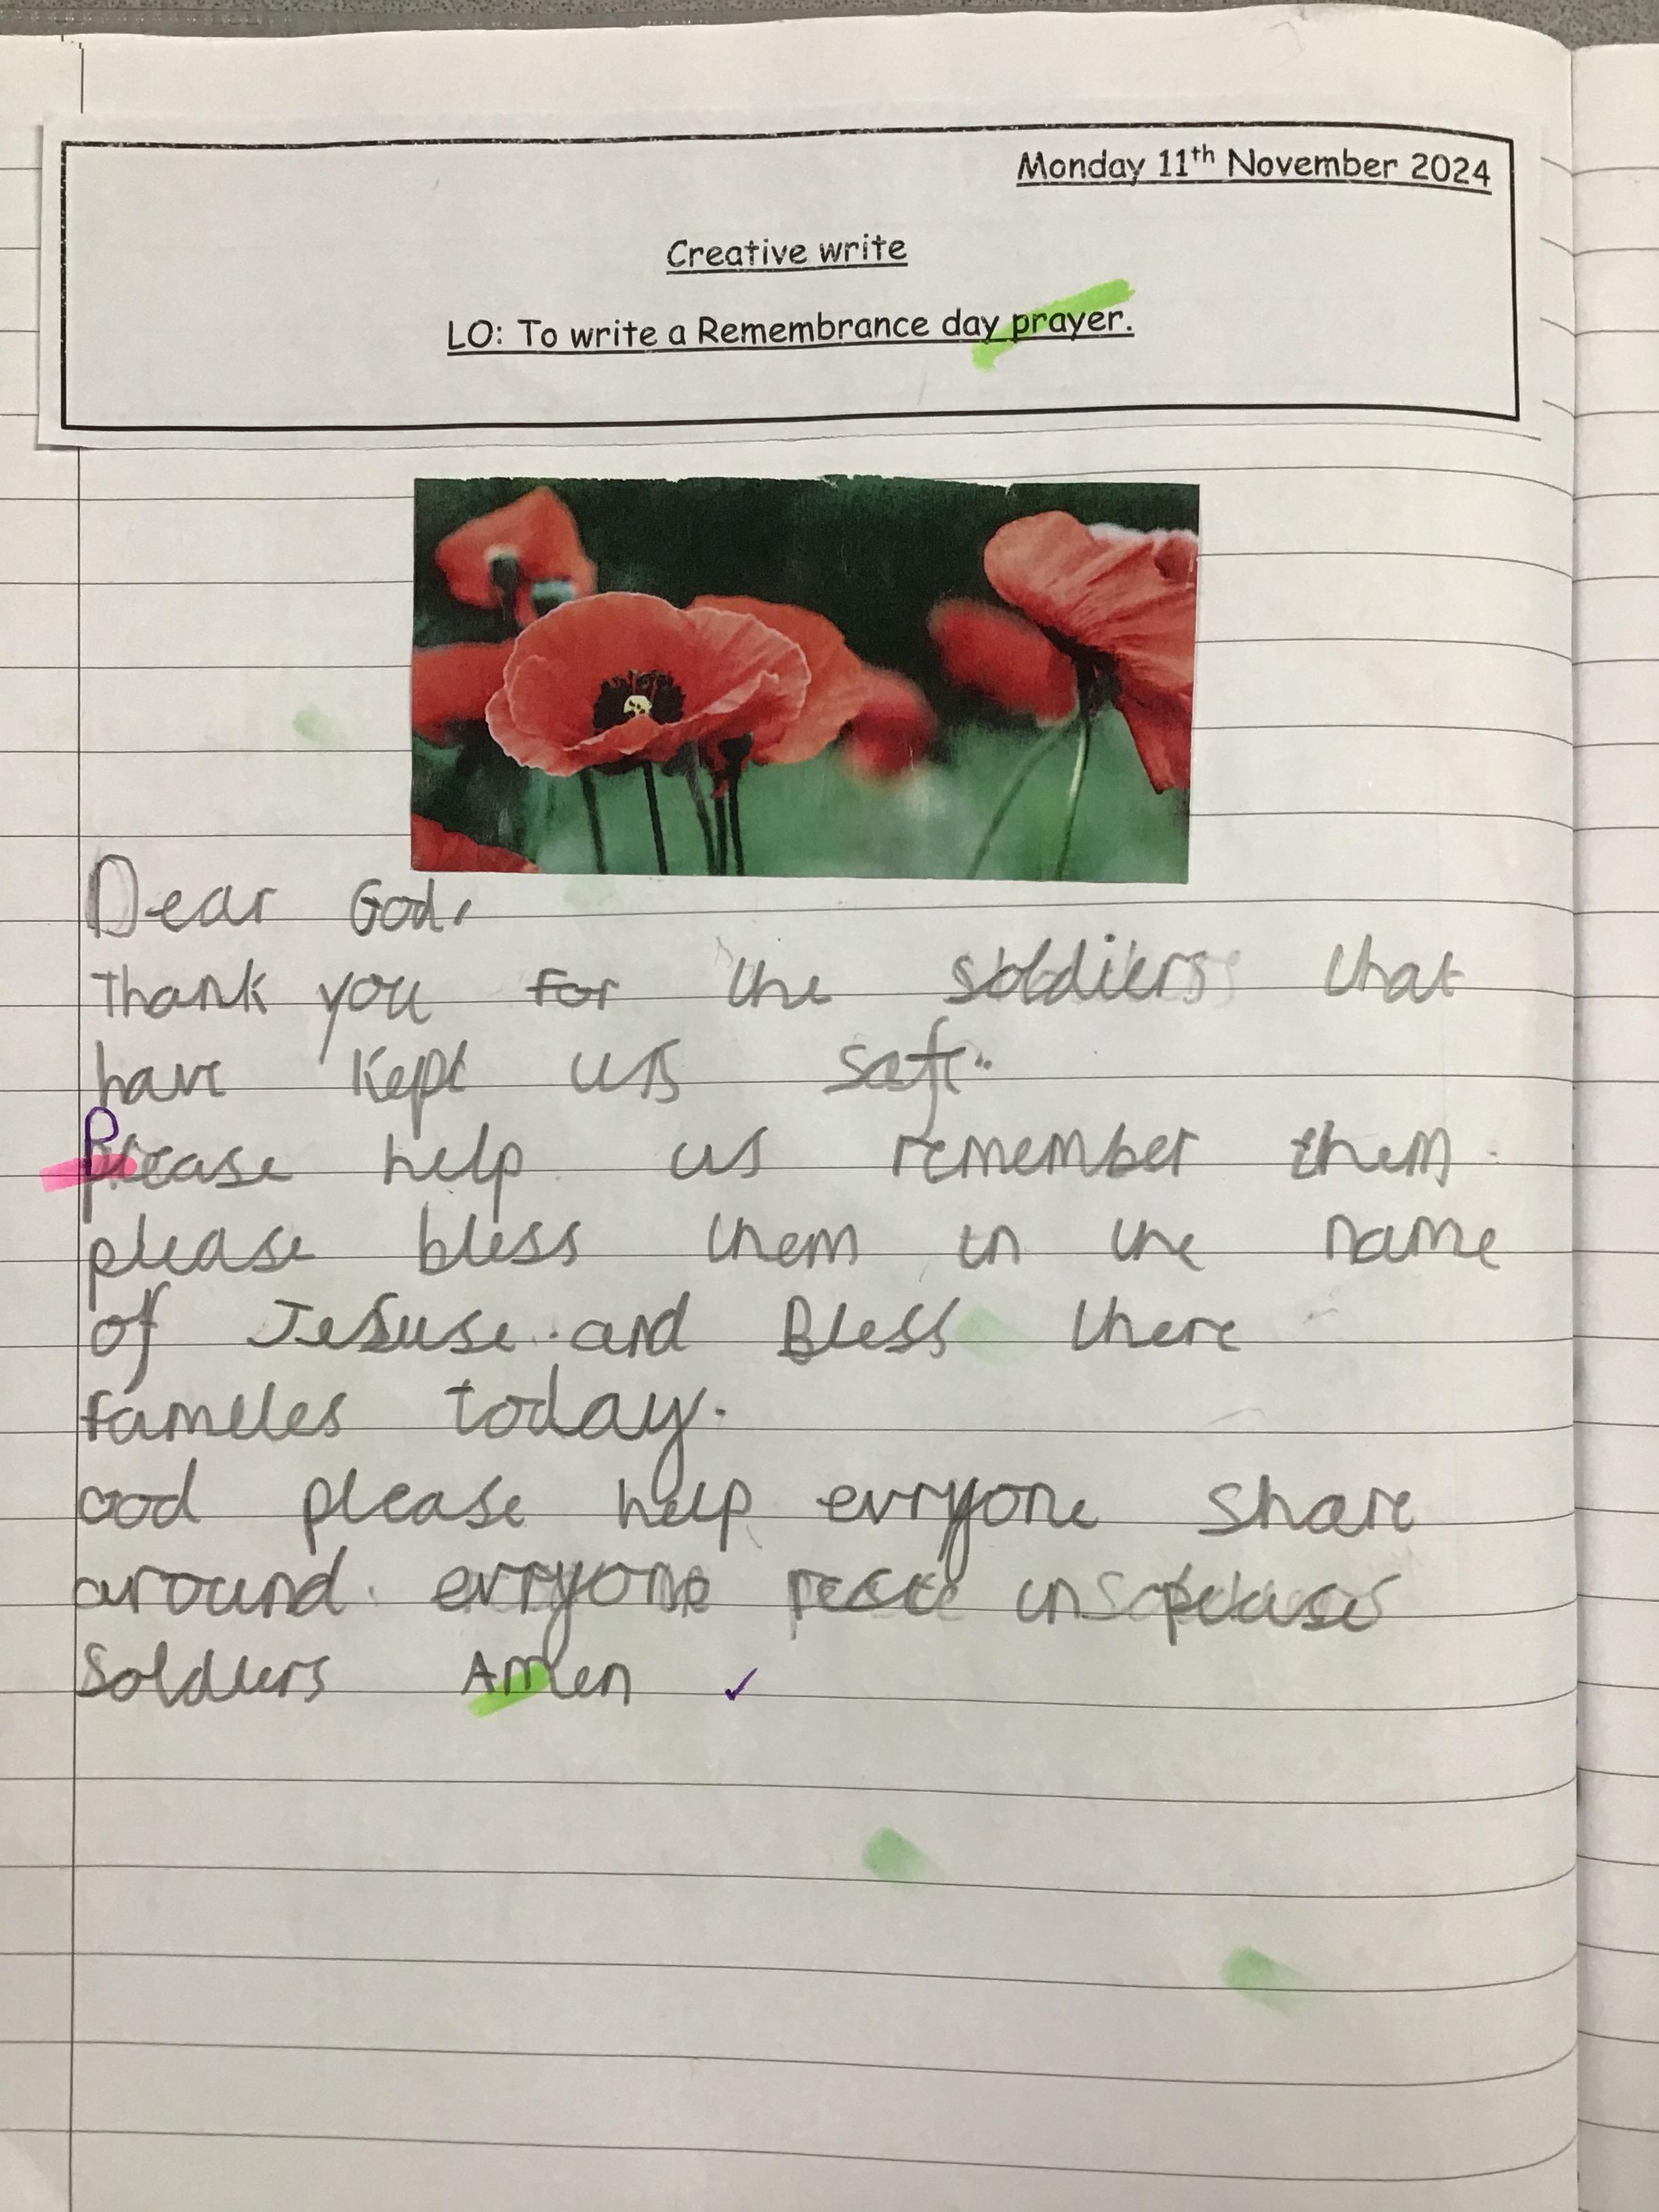 Monday 11th November 2024
Creative write
LO: To write a Remembrance day prayer.
Dear God,
Thank you for the soldiers that
have kept us safe.
Please help us remember them.
please bless them in the name
of Jesuse. and Bless there
fameles today.
God please help evryone share
around. evryone in
Soldiers Amen ✓